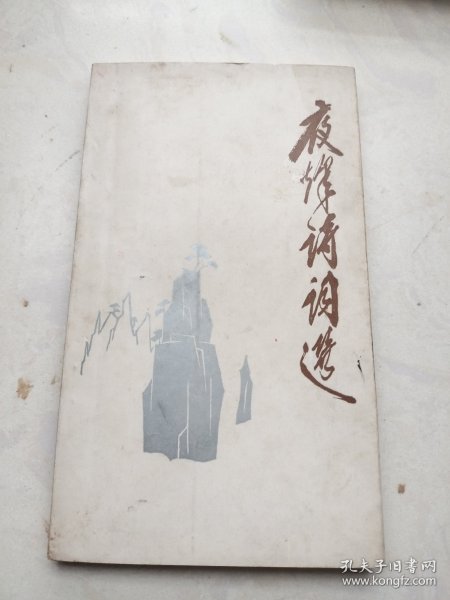 夜烽诗词选
孔夫子旧书网
www.kongfz.com